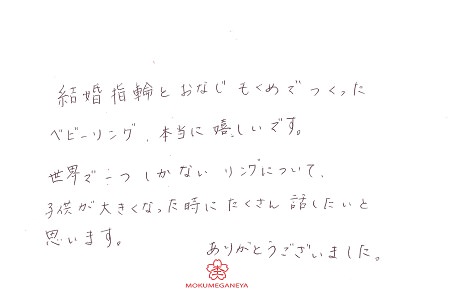 結婚指輪とおなじもくめでつくった
ベビーリング、本当に嬉しいです。
世界で一つしかないリングについて、
子供が大きくなった時にたくさん話したいと
思います。
ありがとうございました。
杢
MOKUMEGANEYA